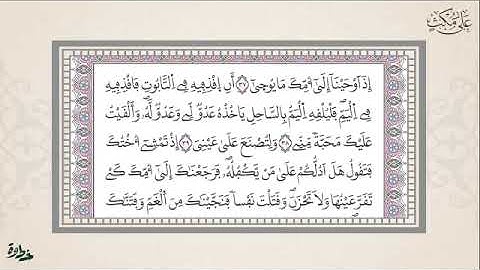 على مكث
إِذَ اَوْحَيْنَآ إِلَىٰٓ أُمِّكَ مَا يُوحَىٰٓ ٣٧ أَنِ اِ۪قْذِفِيهِ فِے اِ۬لتَّابُوتِ فَاقْذِفِيهِ
فِے اِ۬لْيَمِّ فَلْيُلْقِهِ اِ۬لْيَمُّ بِالسَّاحِلِ يَاخُذْهُ عَدُوّٞ لِّے وَعَدُوّٞ لَّهُۥۖ وَأَلْقَيْتُ
عَلَيْكَ مَحَبَّةٗ مِّنِّے ٣٨ وَلِتُصْنَعَ عَلَىٰ عَيْنِيَ ٣٩ إِذْ تَمْشِےٓ أُخْتُكَ
فَتَقُولُ هَلَ اَدُلُّكُمْ عَلَىٰ مَنْ يَّكْفُلُهُۥۖ فَرَجَعْنَٰكَ إِلَىٰٓ أُمِّكَ كَےْ
تَقَرَّ عَيْنُهَا وَلَا تَحْزَنَۖ وَقَتَلْتَ نَفْساٗ فَنَجَّيْنَٰكَ مِنَ اَ۬لْغَمِّ وَفَتَنَّٰكَ
خطوة